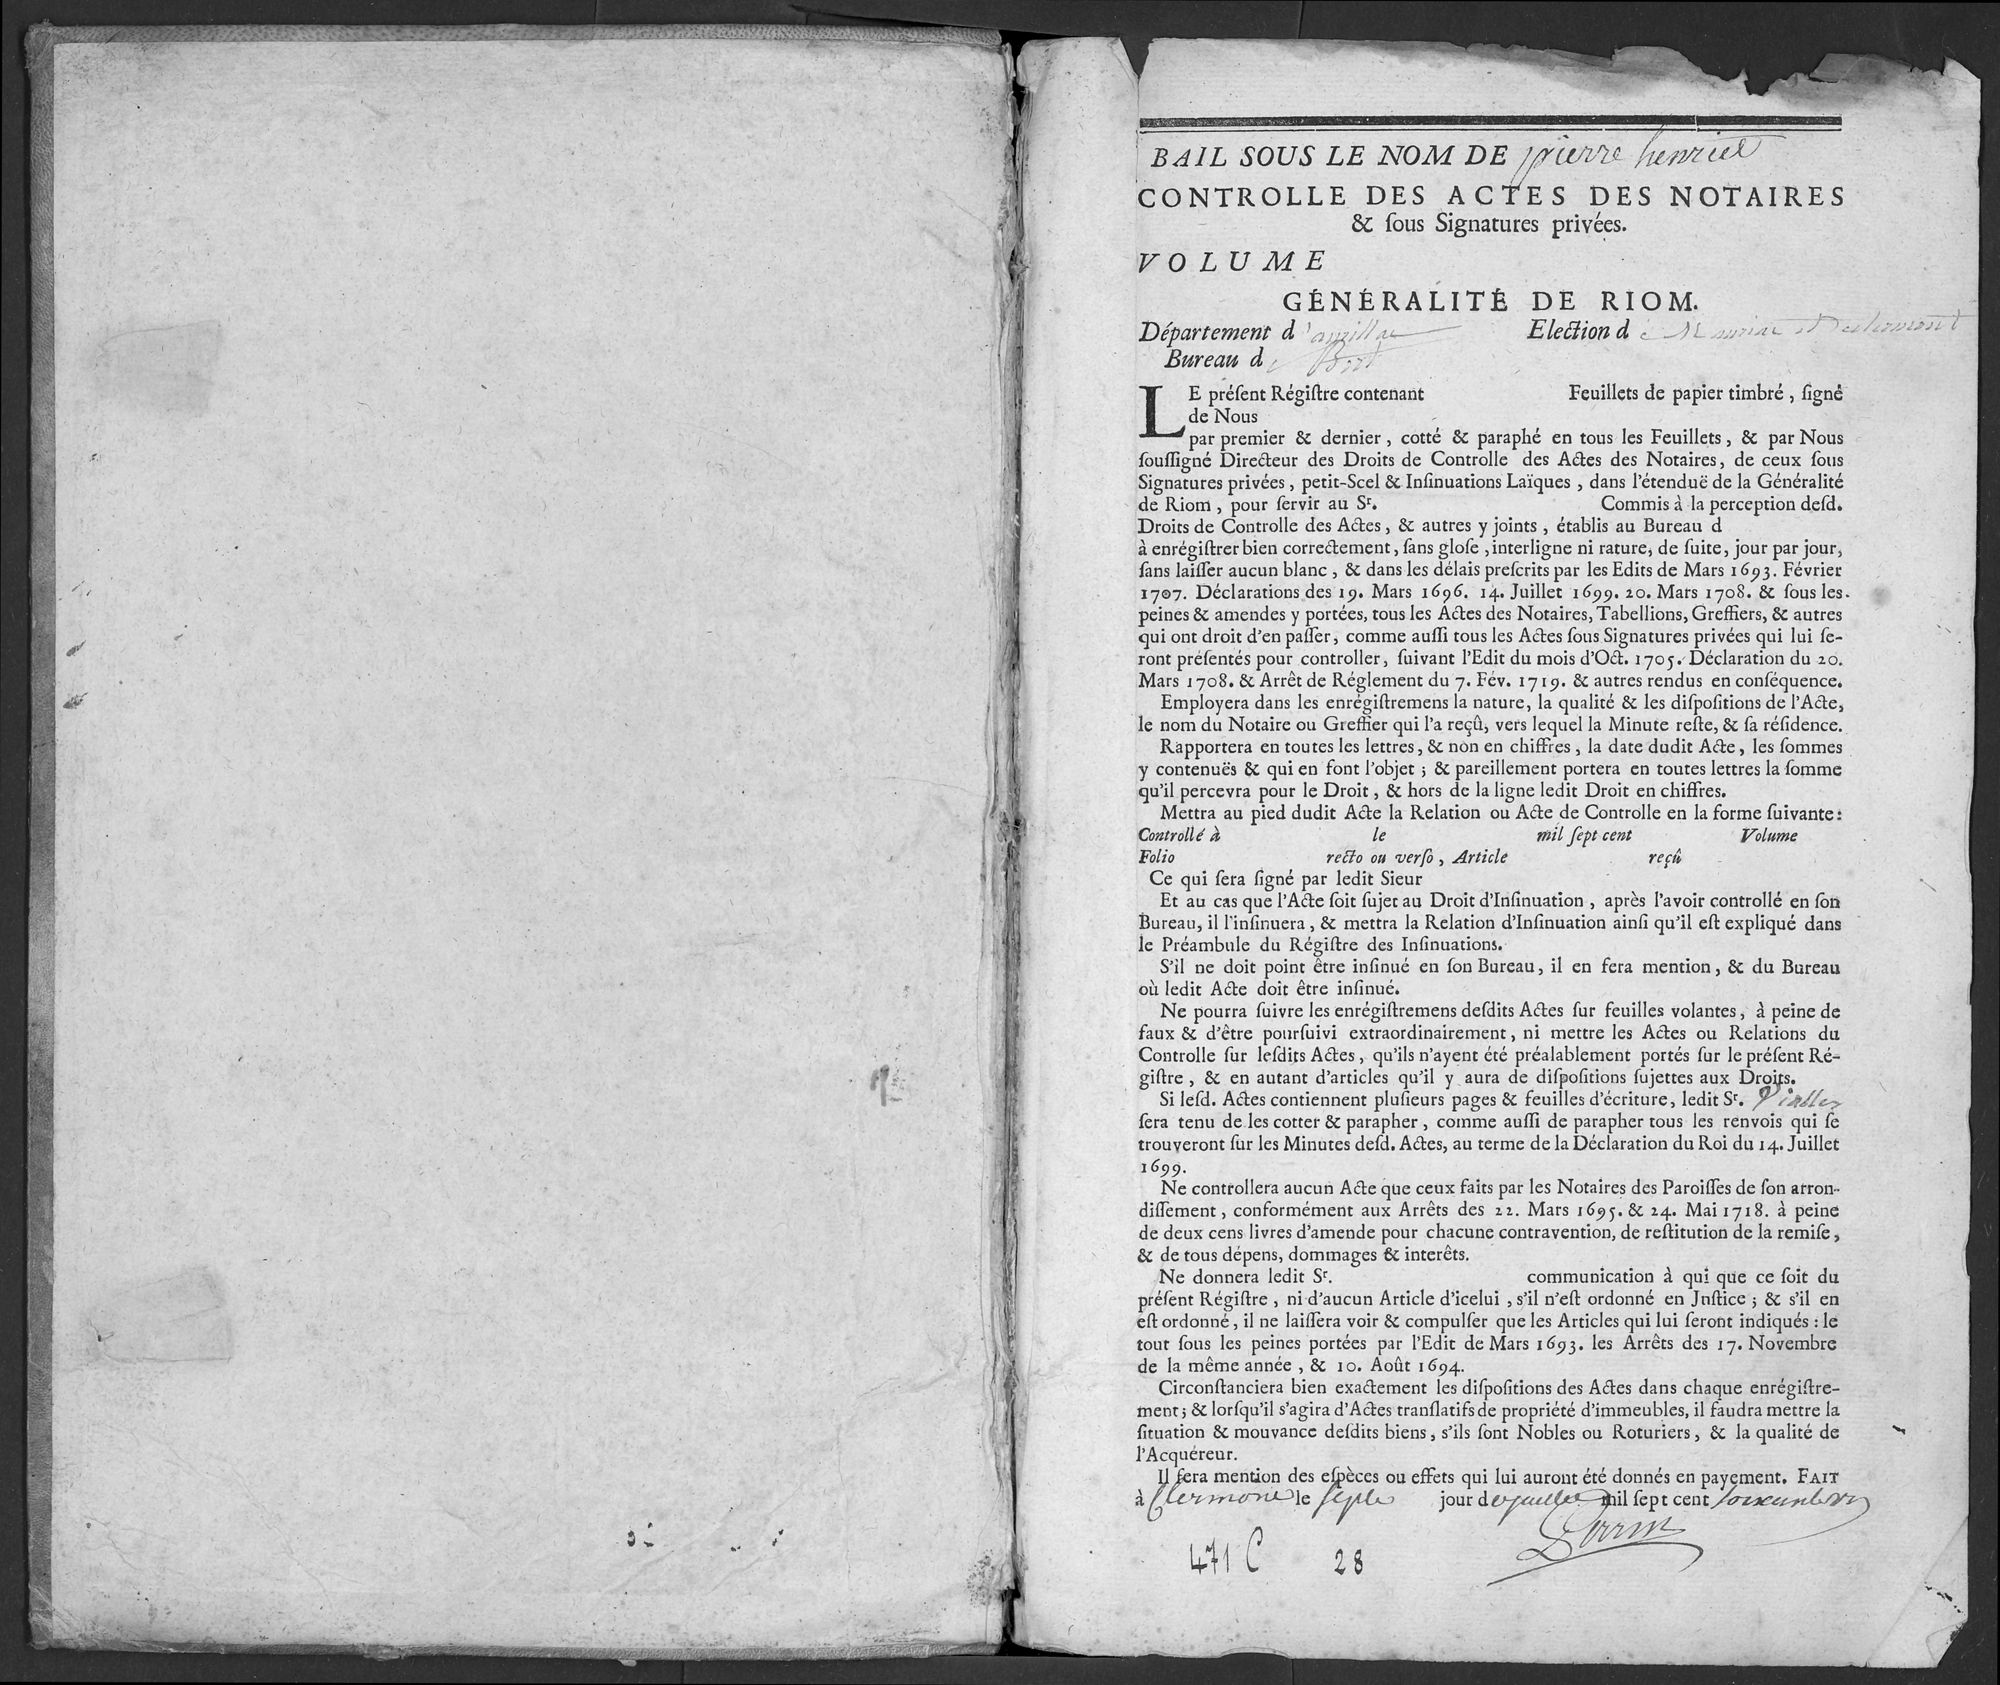 BAIL SOUS LE NOM DE pierre henriet
CONTROLLE DES ACTES DES NOTAIRES
& ſous Signatures privées.
VOLUME
GÉNÉRALITÉ DE RIOM.
Département d'aurillac Election de Mauriac et Declermont
Bureau de Bort
LE préſent Régiſtre contenant Feuillets de papier timbré, ſigné
de Nous
par premier & dernier, cotté & paraphé en tous les Feuillets, & par Nous
ſouſſigné Directeur des Droits de Controlle des Actes des Notaires, de ceux ſous
Signatures privées, petit-Scel & Inſinuations Laïques, dans l'étenduë de la Généralité
de Riom, pour ſervir au Sr. Commis à la perception deſd.
Droits de Controlle des Actes, & autres y joints, établis au Bureau d
à enrégiſtrer bien correctement, ſans gloſe, interligne ni rature, de ſuite, jour par jour,
ſans laiſſer aucun blanc, & dans les délais preſcrits par les Edits de Mars 1693. Février
1707. Déclarations des 19. Mars 1696. 14. Juillet 1699. 20. Mars 1708. & ſous les
peines & amendes y portées, tous les Actes des Notaires, Tabellions, Greffiers, & autres
qui ont droit d'en paſſer, comme auſſi tous les Actes ſous Signatures privées qui lui ſe-
ront préſentés pour controller, ſuivant l'Edit du mois d'Oct. 1705. Déclaration du 20.
Mars 1708. & Arrêt de Réglement du 7. Fév. 1719. & autres rendus en conſéquence.
Employera dans les enrégiſtremens la nature, la qualité & les diſpoſitions de l'Acte,
le nom du Notaire ou Greffier qui l'a reçû, vers lequel la Minute reſte, & ſa réſidence.
Rapportera en toutes les lettres, & non en chiffres, la date dudit Acte, les ſommes
y contenuës & qui en font l'objet; & pareillement portera en toutes lettres la ſomme
qu'il percevra pour le Droit, & hors de la ligne ledit Droit en chiffres.
Mettra au pied dudit Acte la Relation ou Acte de Controlle en la forme ſuivante:
Controllé à le mil ſept cent Volume
Folio recto ou verſo, Article reçû
Ce qui ſera ſigné par ledit Sieur
Et au cas que l'Acte ſoit ſujet au Droit d'Inſinuation, après l'avoir controllé en ſon
Bureau, il l'inſinuera, & mettra la Relation d'Inſinuation ainſi qu'il eſt expliqué dans
le Préambule du Régiſtre des Inſinuations.
S'il ne doit point être inſinué en ſon Bureau, il en fera mention, & du Bureau
où ledit Acte doit être inſinué.
Ne pourra ſuivre les enrégiſtremens deſdits Actes ſur feuilles volantes, à peine de
faux & d'être pourſuivi extraordinairement, ni mettre les Actes ou Relations du
Controlle ſur leſdits Actes, qu'ils n'ayent été préalablement portés ſur le préſent Ré-
giſtre, & en autant d'articles qu'il y aura de diſpoſitions ſujettes aux Droits.
Si leſd. Actes contiennent pluſieurs pages & feuilles d'écriture, ledit Sr.
ſera tenu de les cotter & parapher, comme auſſi de parapher tous les renvois qui ſe
trouveront ſur les Minutes deſd. Actes, au terme de la Déclaration du Roi du 14. Juillet
1699.
Ne controllera aucun Acte que ceux faits par les Notaires des Paroiſſes de ſon arron-
diſſement, conformément aux Arrêts des 22. Mars 1695. & 24. Mai 1718. à peine
de deux cens livres d'amende pour chacune contravention, de reſtitution de la remiſe,
& de tous dépens, dommages & interêts.
Ne donnera ledit Sr. communication à qui que ce ſoit du
préſent Régiſtre, ni d'aucun Article d'icelui, s'il n'eſt ordonné en Juſtice; & s'il en
eſt ordonné, il ne laiſſera voir & compulſer que les Articles qui lui ſeront indiqués: le
tout ſous les peines portées par l'Edit de Mars 1693. les Arrêts des 17. Novembre
de la même année, & 10. Août 1694.
Circonſtanciera bien exactement les diſpoſitions des Actes dans chaque enrégiſtre-
ment; & lorſqu'il s'agira d'Actes tranſlatifs de propriété d'immeubles, il faudra mettre la
ſituation & mouvance deſdits biens, s'ils ſont Nobles ou Roturiers, & la qualité de
l'Acquéreur.
Il ſera mention des eſpèces ou effets qui lui auront été donnés en payement. FAIT
à Clermont le ſept jour de juillet mil ſept cent
471 C 28